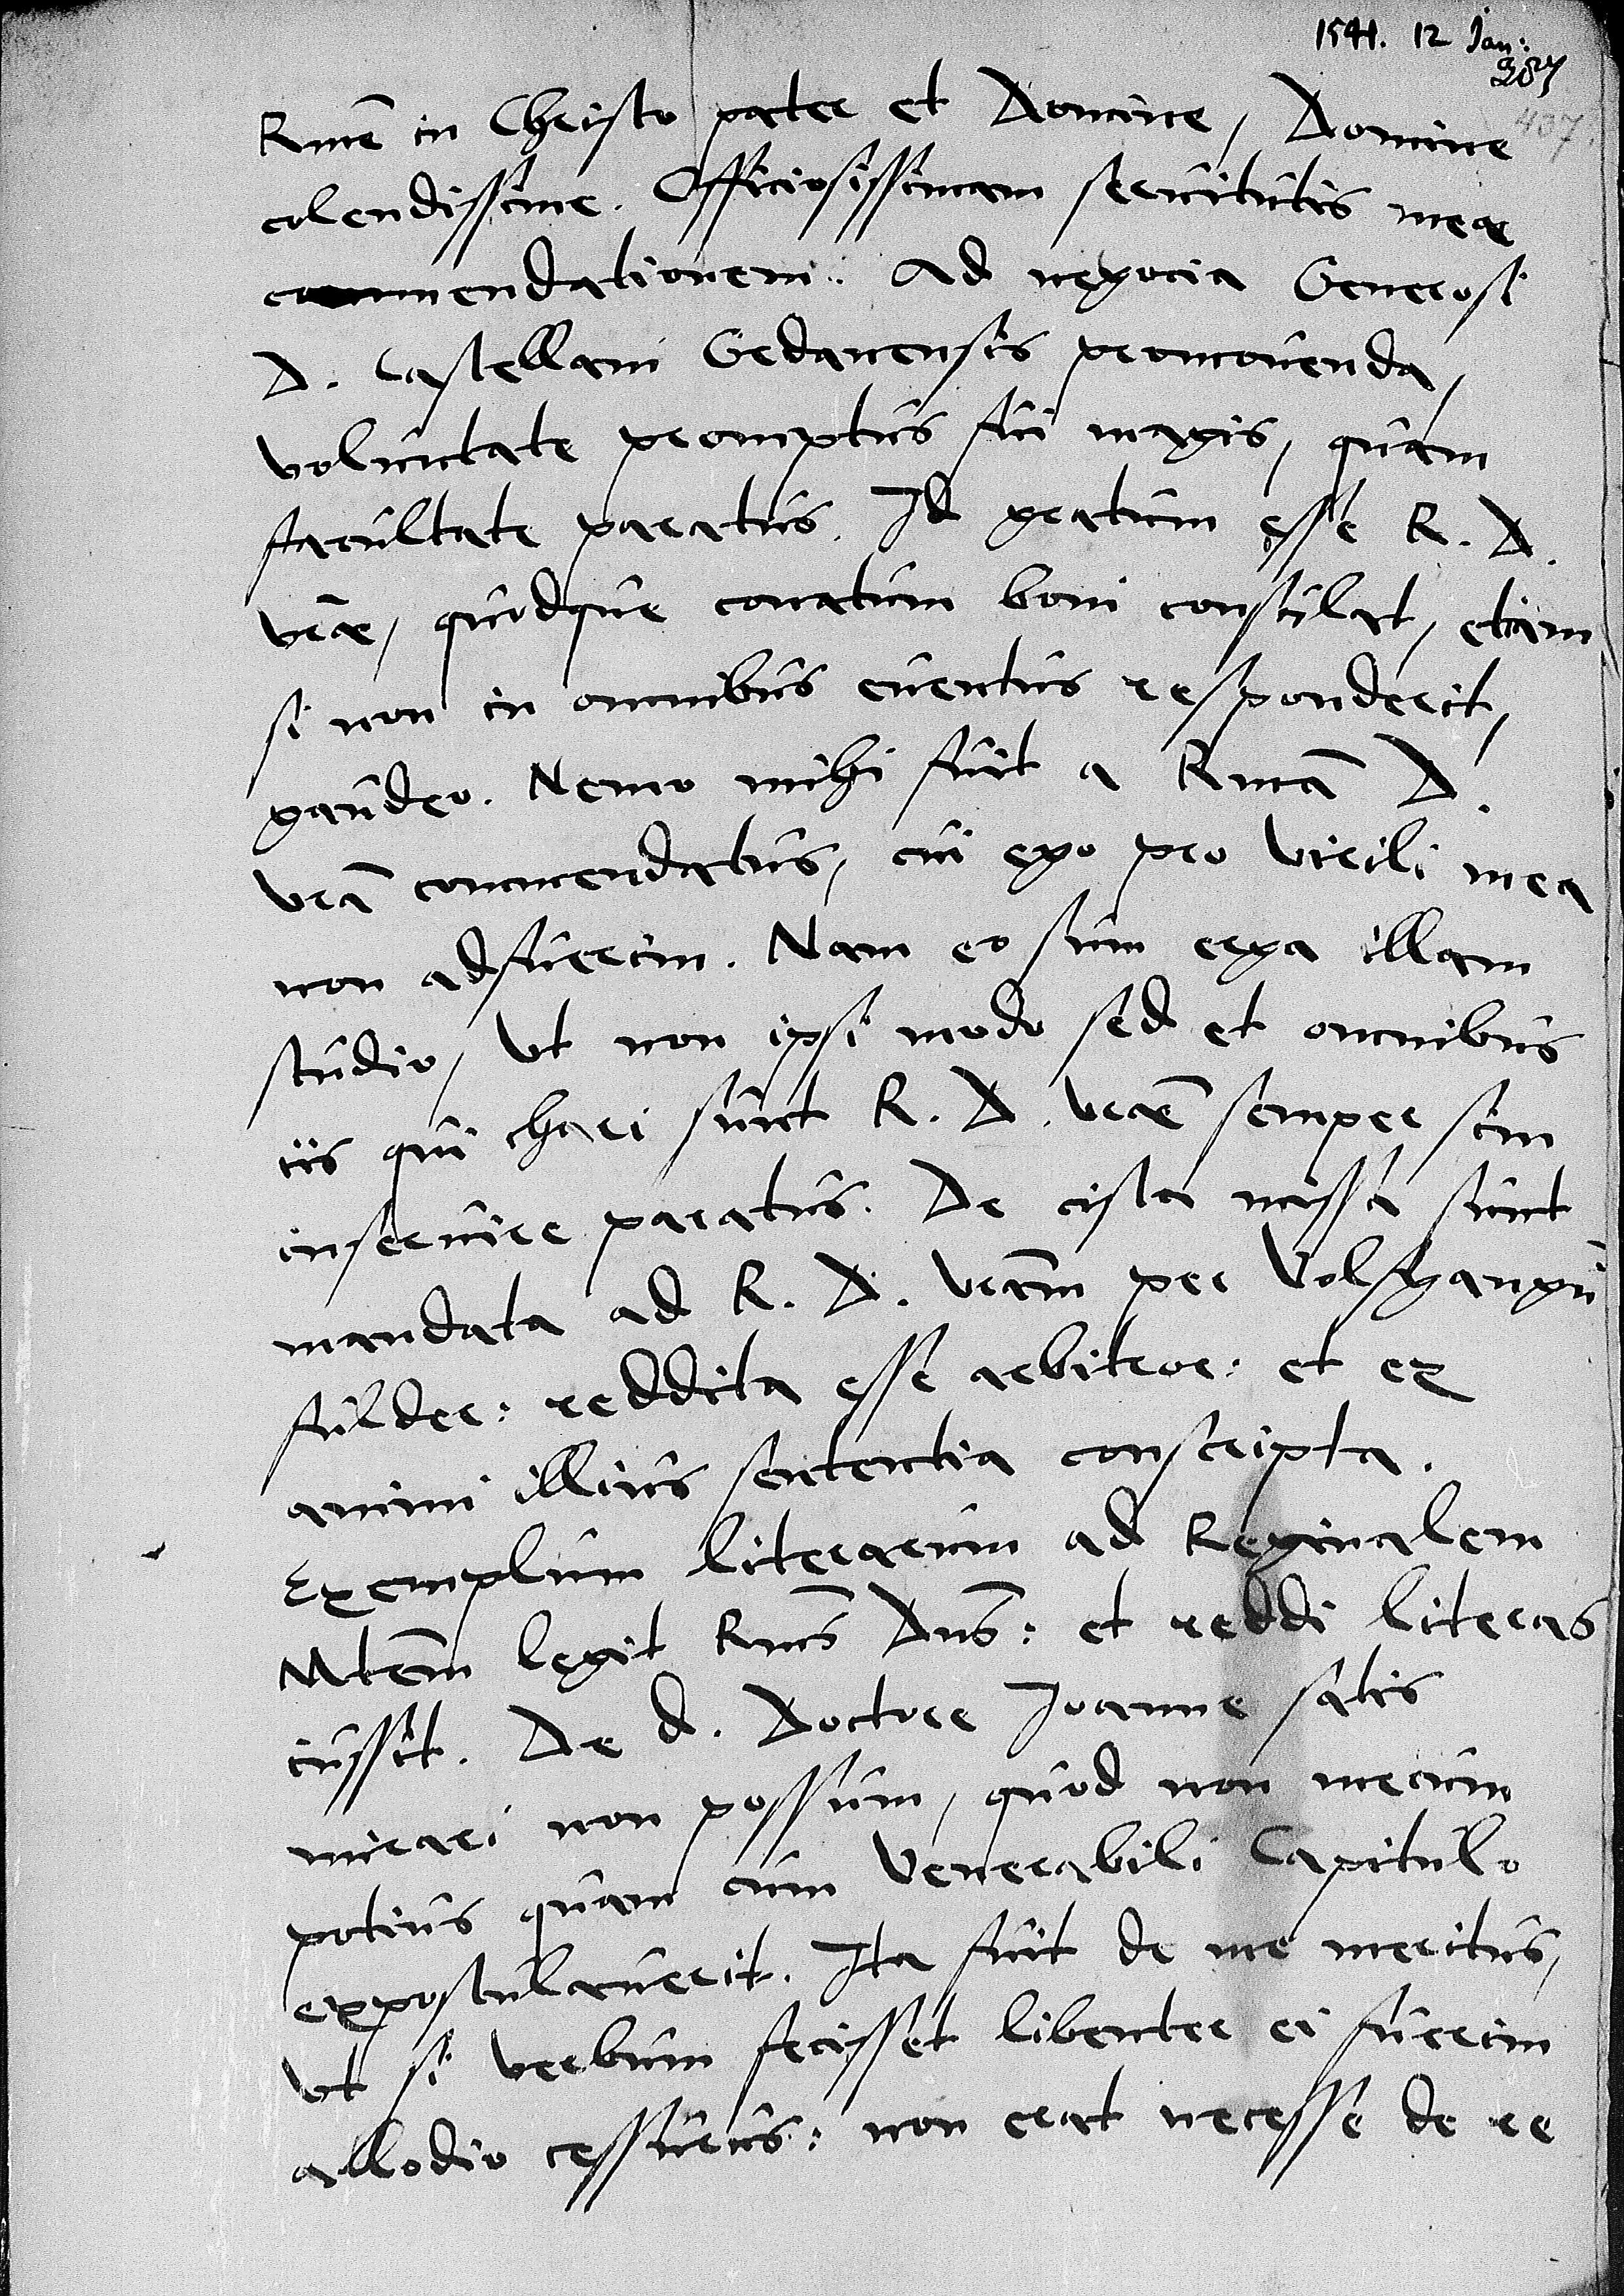 1541. 12 Jan:
407
Rme in Christo pater et Domine, Domine
colendissime. Officiosissimam servitutis meae
commendationem. Ad negocia Generosi
D. Castellani Gedanensis promovenda,
voluntate promptus fui magis, quam
facultate paratus. Id gratum esse R. D.
vrae, quodque conatum boni consulat, etiam
si non in omnibus eventus responderit,
gaudeo. Nemo mihi fuit a Rma D.
vra commendatus, cui ego pro virili mea
non adfuerim. Nam eo sum erga illam
studio, ut non ipsi modo sed et omnibus
iis qui chari sunt R. D. vrae semper sim
inservire paratus. De cista missa sunt
mandata ad R. D. vram per Volfgangū
fulder: reddita esse arbitror: et ex
animi illius sententia conscripta.
Exemplum literarum ad Reginalem
Mtem legit Rmus Dnus: et reddi literas
iussit. De d. Doctore Joanne satis
mirari non possum, quod non mecum
potius quam cum Venerabili Capitulo
expostulaverit. Ita fuit de me meritus,
ut si verbum fecisset libenter ei fuerim
allodio cessurus: non erat necesse de re